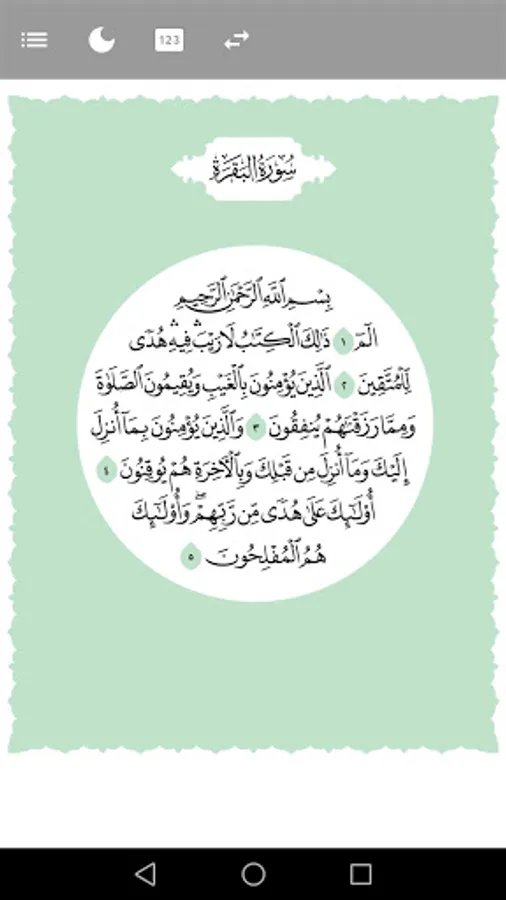 123
سُورَةُ البَقَرَةِ
بِسْمِ ٱللَّهِ ٱلرَّحْمَٰنِ ٱلرَّحِيمِ
الٓمٓ ١ ذَٰلِكَ ٱلْكِتَٰبُ لَا رَيْبَ ۛ فِيهِ ۛ هُدًى
لِّلْمُتَّقِينَ ٢ ٱلَّذِينَ يُؤْمِنُونَ بِٱلْغَيْبِ وَيُقِيمُونَ ٱلصَّلَوٰةَ
وَمِمَّا رَزَقْنَٰهُمْ يُنفِقُونَ ٣ وَٱلَّذِينَ يُؤْمِنُونَ بِمَآ أُنزِلَ
إِلَيْكَ وَمَآ أُنزِلَ مِن قَبْلِكَ وَبِٱلْءَاخِرَةِ هُمْ يُوقِنُونَ ٤
أُو۟لَٰٓئِكَ عَلَىٰ هُدًى مِّن رَّبِّهِمْ ۖ وَأُو۟لَٰٓئِكَ
هُمُ ٱلْمُفْلِحُونَ ٥